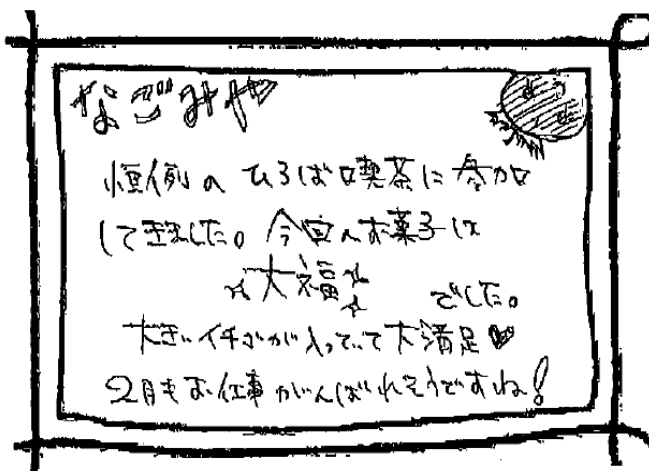 なごみや
恒例のひろば喫茶に参加
してきました。今回のお菓子は
☆大福☆ でした。
大きいイチゴが入っていて大満足♥
2月もお仕事がんばれそうですね!